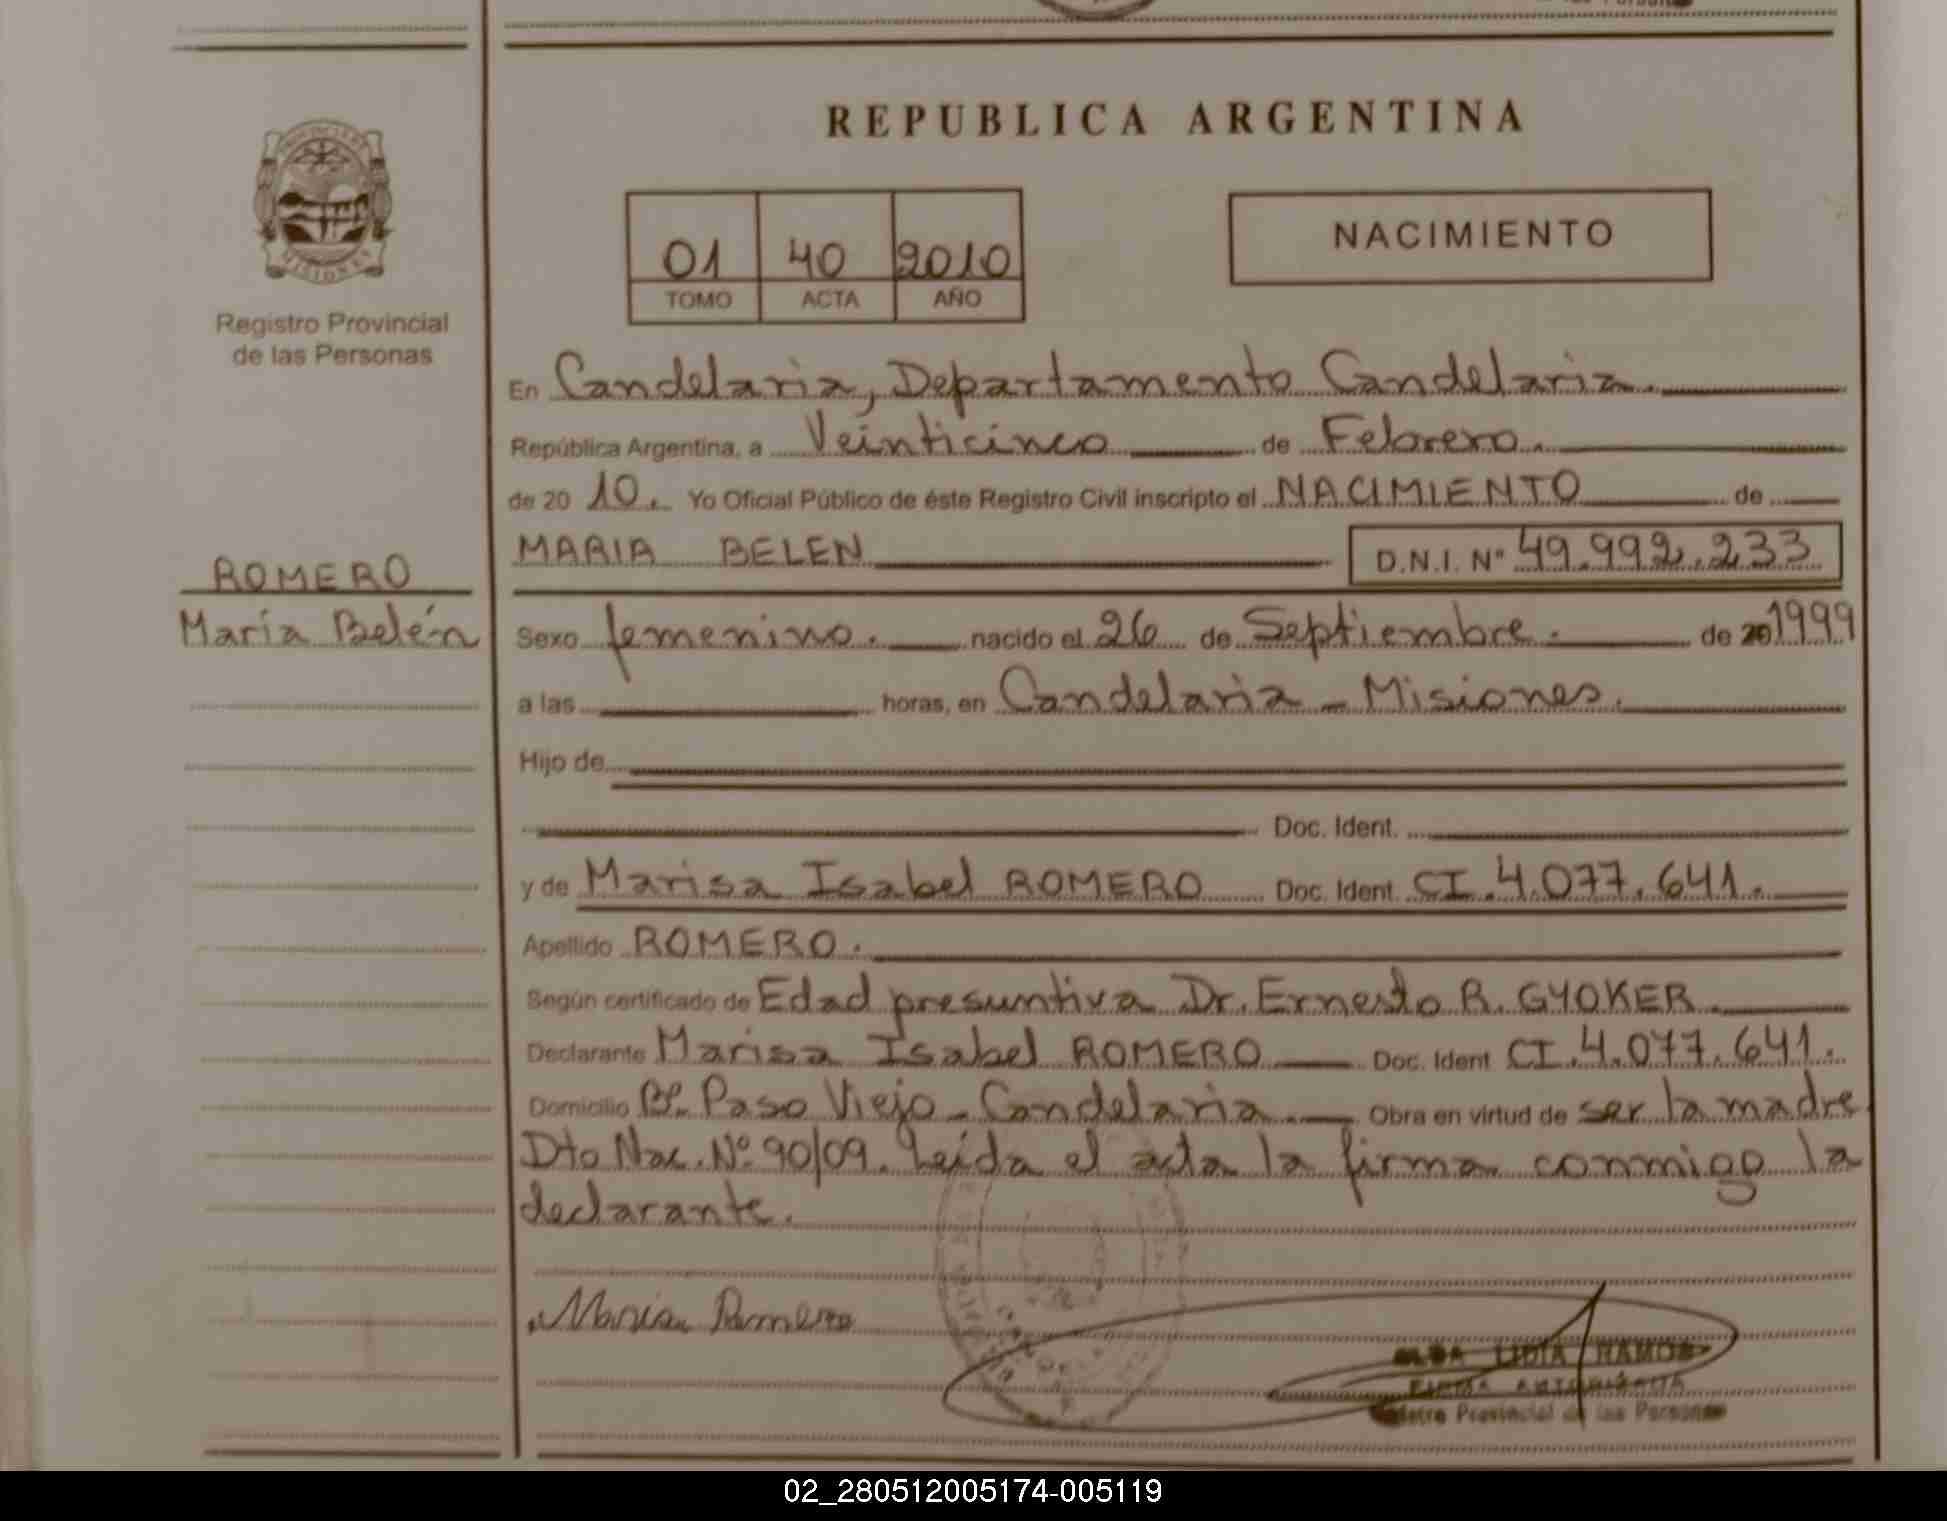 REPUBLICA ARGENTINA
PROVINCIA DE
MISIONES
Registro Provincial
de las Personas
01 40 2010
TOMO ACTA AÑO
NACIMIENTO
En Candelaria, Departamento Candelaria.
República Argentina, a Veinticinco de Febrero.
de 20 10. Yo Oficial Público de éste Registro Civil inscripto el NACIMIENTO de
MARIA BELEN D.N.I. Nº 49.992.233
ROMERO
María Belén
Sexo femenino. nacido el 26 de Septiembre. de 20 1999
a las horas, en Candelaria - Misiones.
Hijo de
Doc. Ident.
y de Marisa Isabel ROMERO Doc. Ident. CI. 4.077.641.
Apellido ROMERO.
Según certificado de Edad presuntiva Dr. Ernesto R. GYOKER
Declarante Marisa Isabel ROMERO Doc. Ident CI. 4.077.641.
Domicilio Bº. Paso Viejo - Candelaria. Obra en virtud de ser la madre
Dto Nac. Nº 90/09. Leída el acta la firma conmigo la
declarante.
Romero
LIDIA RAMOS
FIRMA AUTORIZADA
Provincial de las Personas
02_280512005174-005119